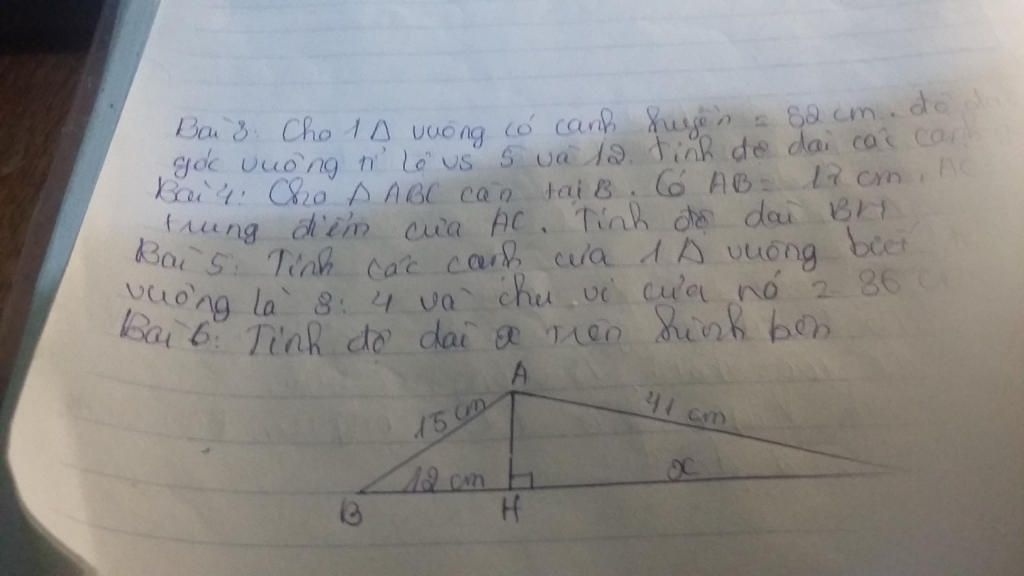 Bài 3: Cho 1 Δ vuông có cạnh huyền = 52 cm. độ dài
góc vuông tỉ lệ vs 5 và 12. Tính độ dài các cạnh
Bài 4: Cho Δ ABC cân tại B. Có AB = 17 cm, AC
trung điểm của AC. Tính độ dài BH
Bài 5: Tính các cạnh của 1 Δ vuông biết
vuông là 3:4 và chu vi của nó = 36
Bài 6: Tính độ dài x trên hình bên
A
15 cm
41 cm
12 cm
x
B
H